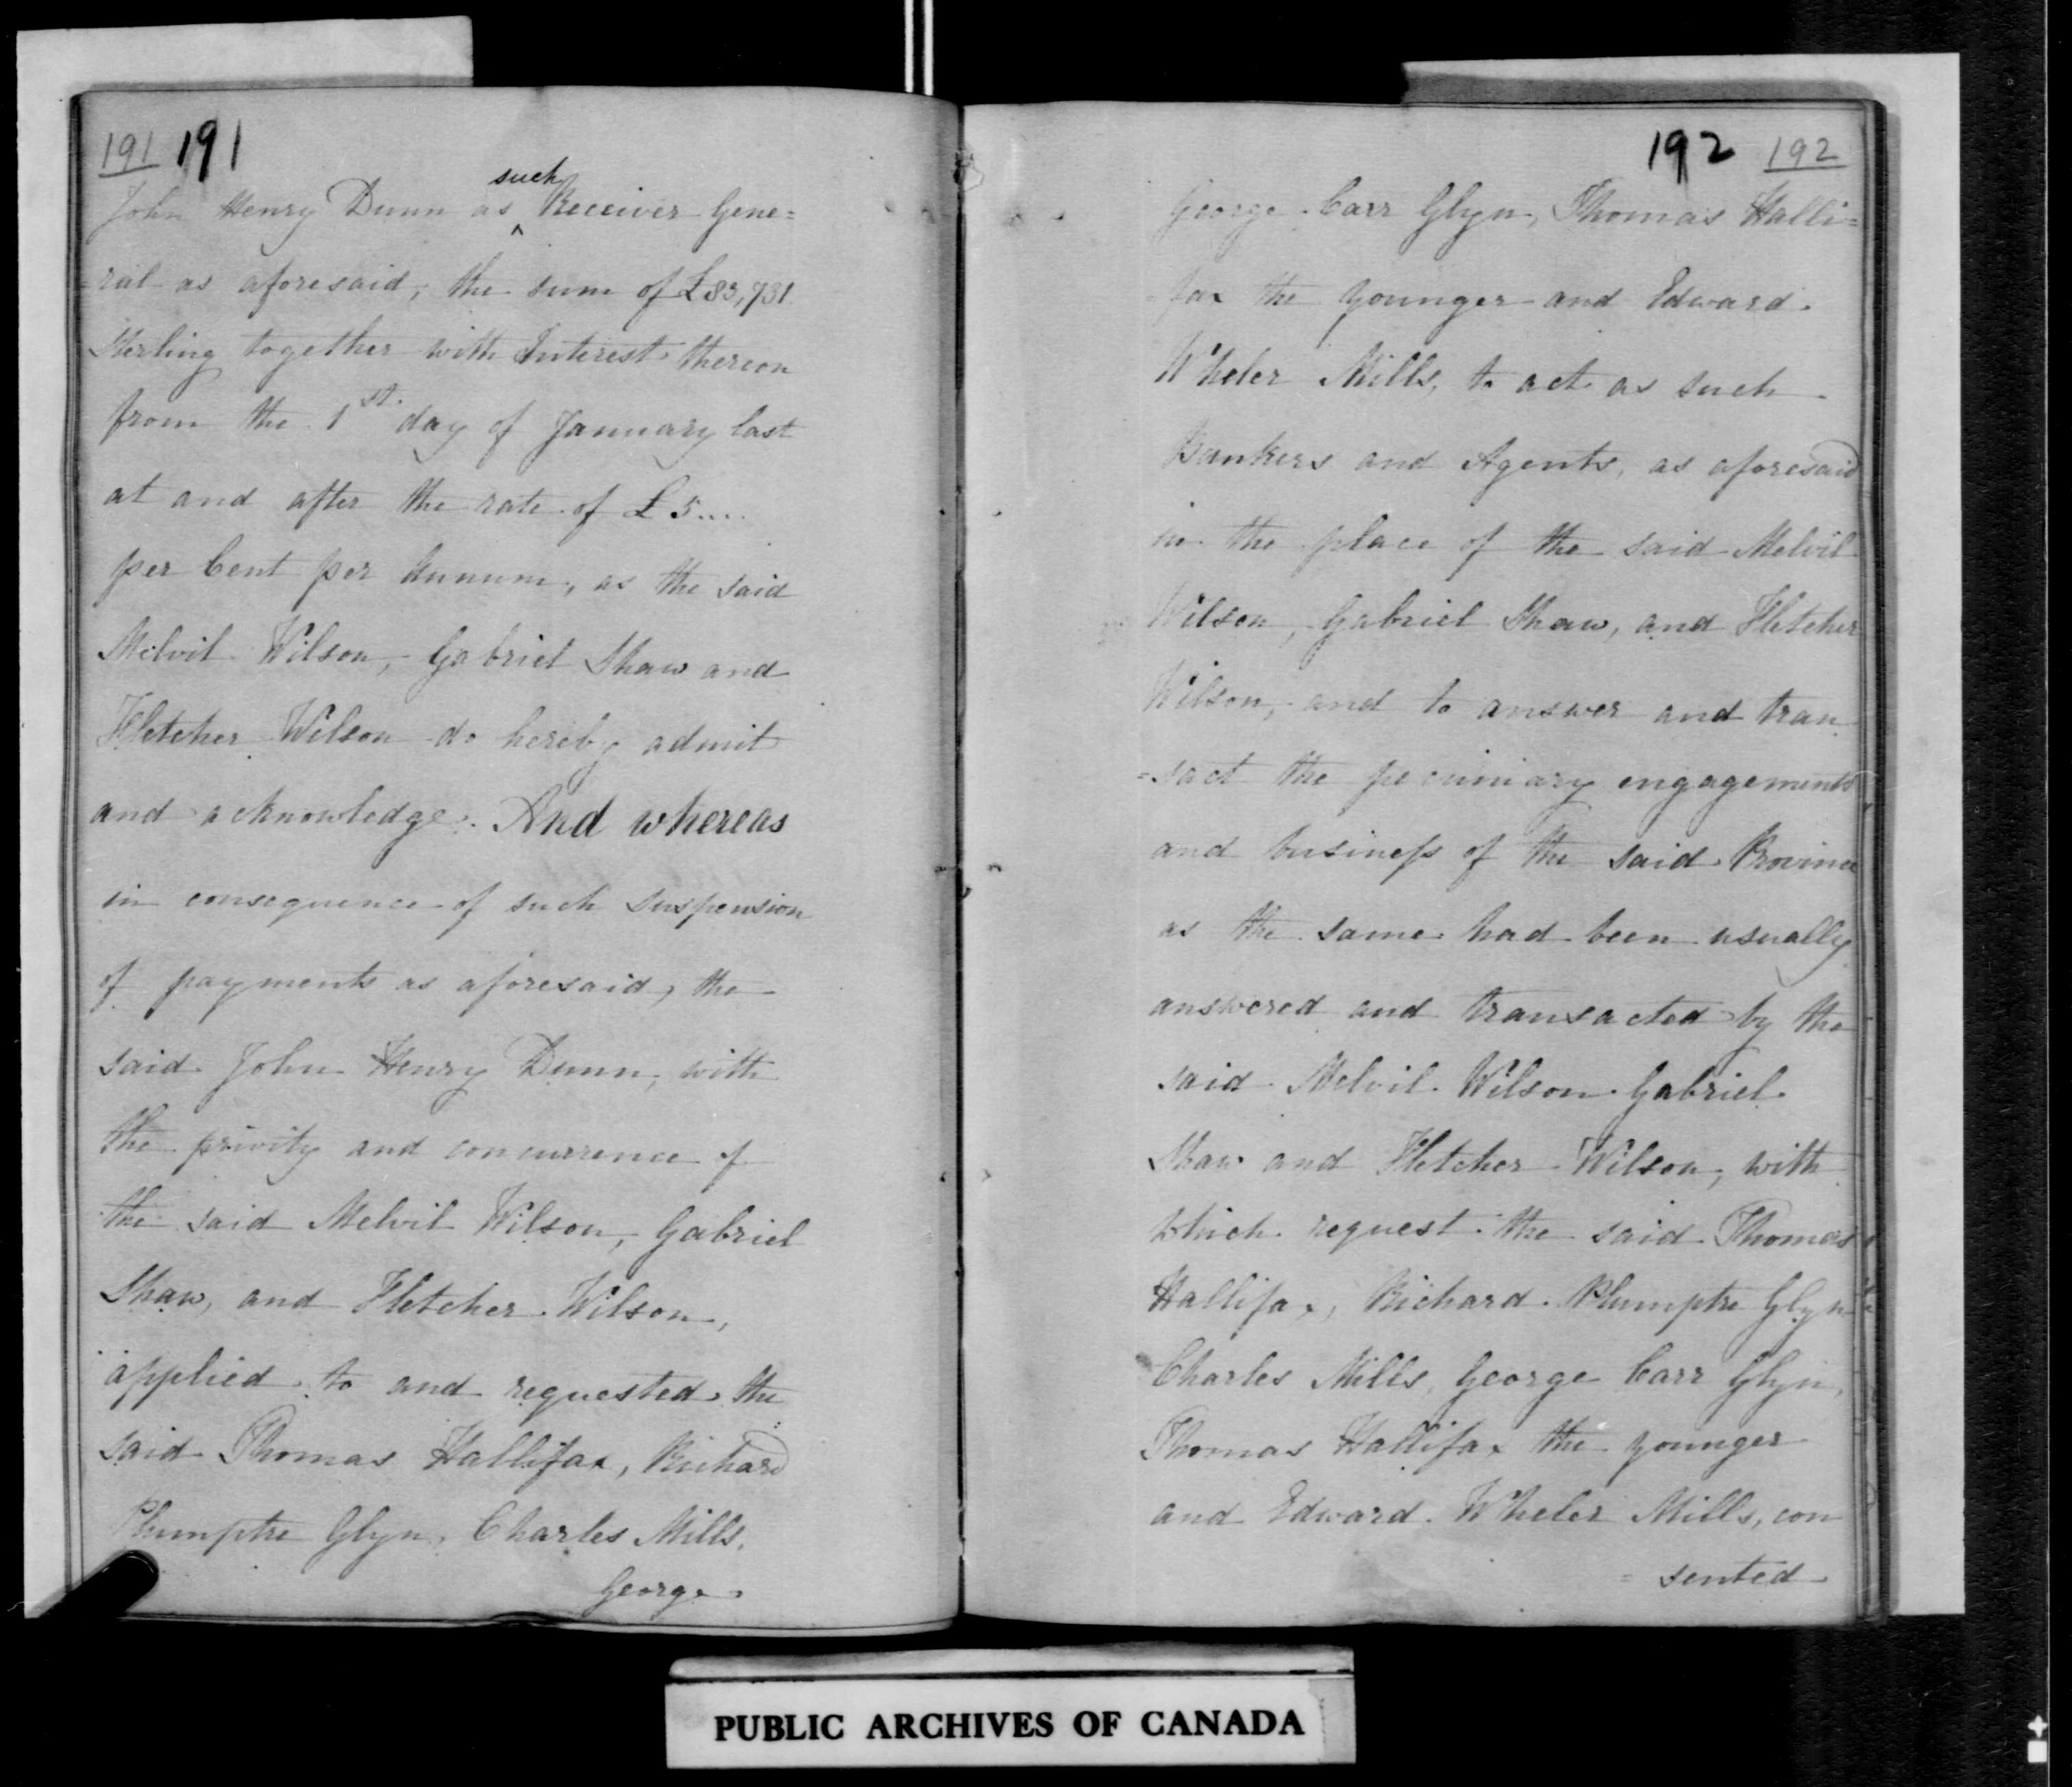 191 191
John Henry Dunn as such Receiver Gene=
=ral as aforesaid, the sum of £83,731
Sterling together with Interest thereon
from the 1st. day of January last
at and after the rate of £5....
per Cent per Annum, as the said
Melvil Wilson, Gabriel Shaw and
Fletcher Wilson do hereby admit
and acknowledge. And whereas
in consequence of such suspension
of payments as aforesaid, the
said John Henry Dunn, with
the privity and concurrence of
the said Melvil Wilson, Gabriel
Shaw, and Fletcher Wilson,
applied to and requested the
said Thomas Hallifax, Richard
Plumptre Glyn, Charles Mills,
George
192 192
George Carr Glyn, Thomas Halli=
=fax the younger and Edward
Wheler Mills, to act as such
Bankers and Agents, as aforesaid
in the place of the said Melvil
Wilson, Gabriel Shaw, and Fletcher
Wilson, and to answer and tran
=sact the pecuniary engagements
and business of the said Province
as the same had been usually
answered and transacted by the
said Melvil Wilson Gabriel
Shaw and Fletcher Wilson, with
which request the said Thomas
Hallifax, Richard Plumptre Glyn
Charles Mills, George Carr Glyn,
Thomas Hallifax the younger
and Edward Wheler Mills, con
=sented
PUBLIC ARCHIVES OF CANADA